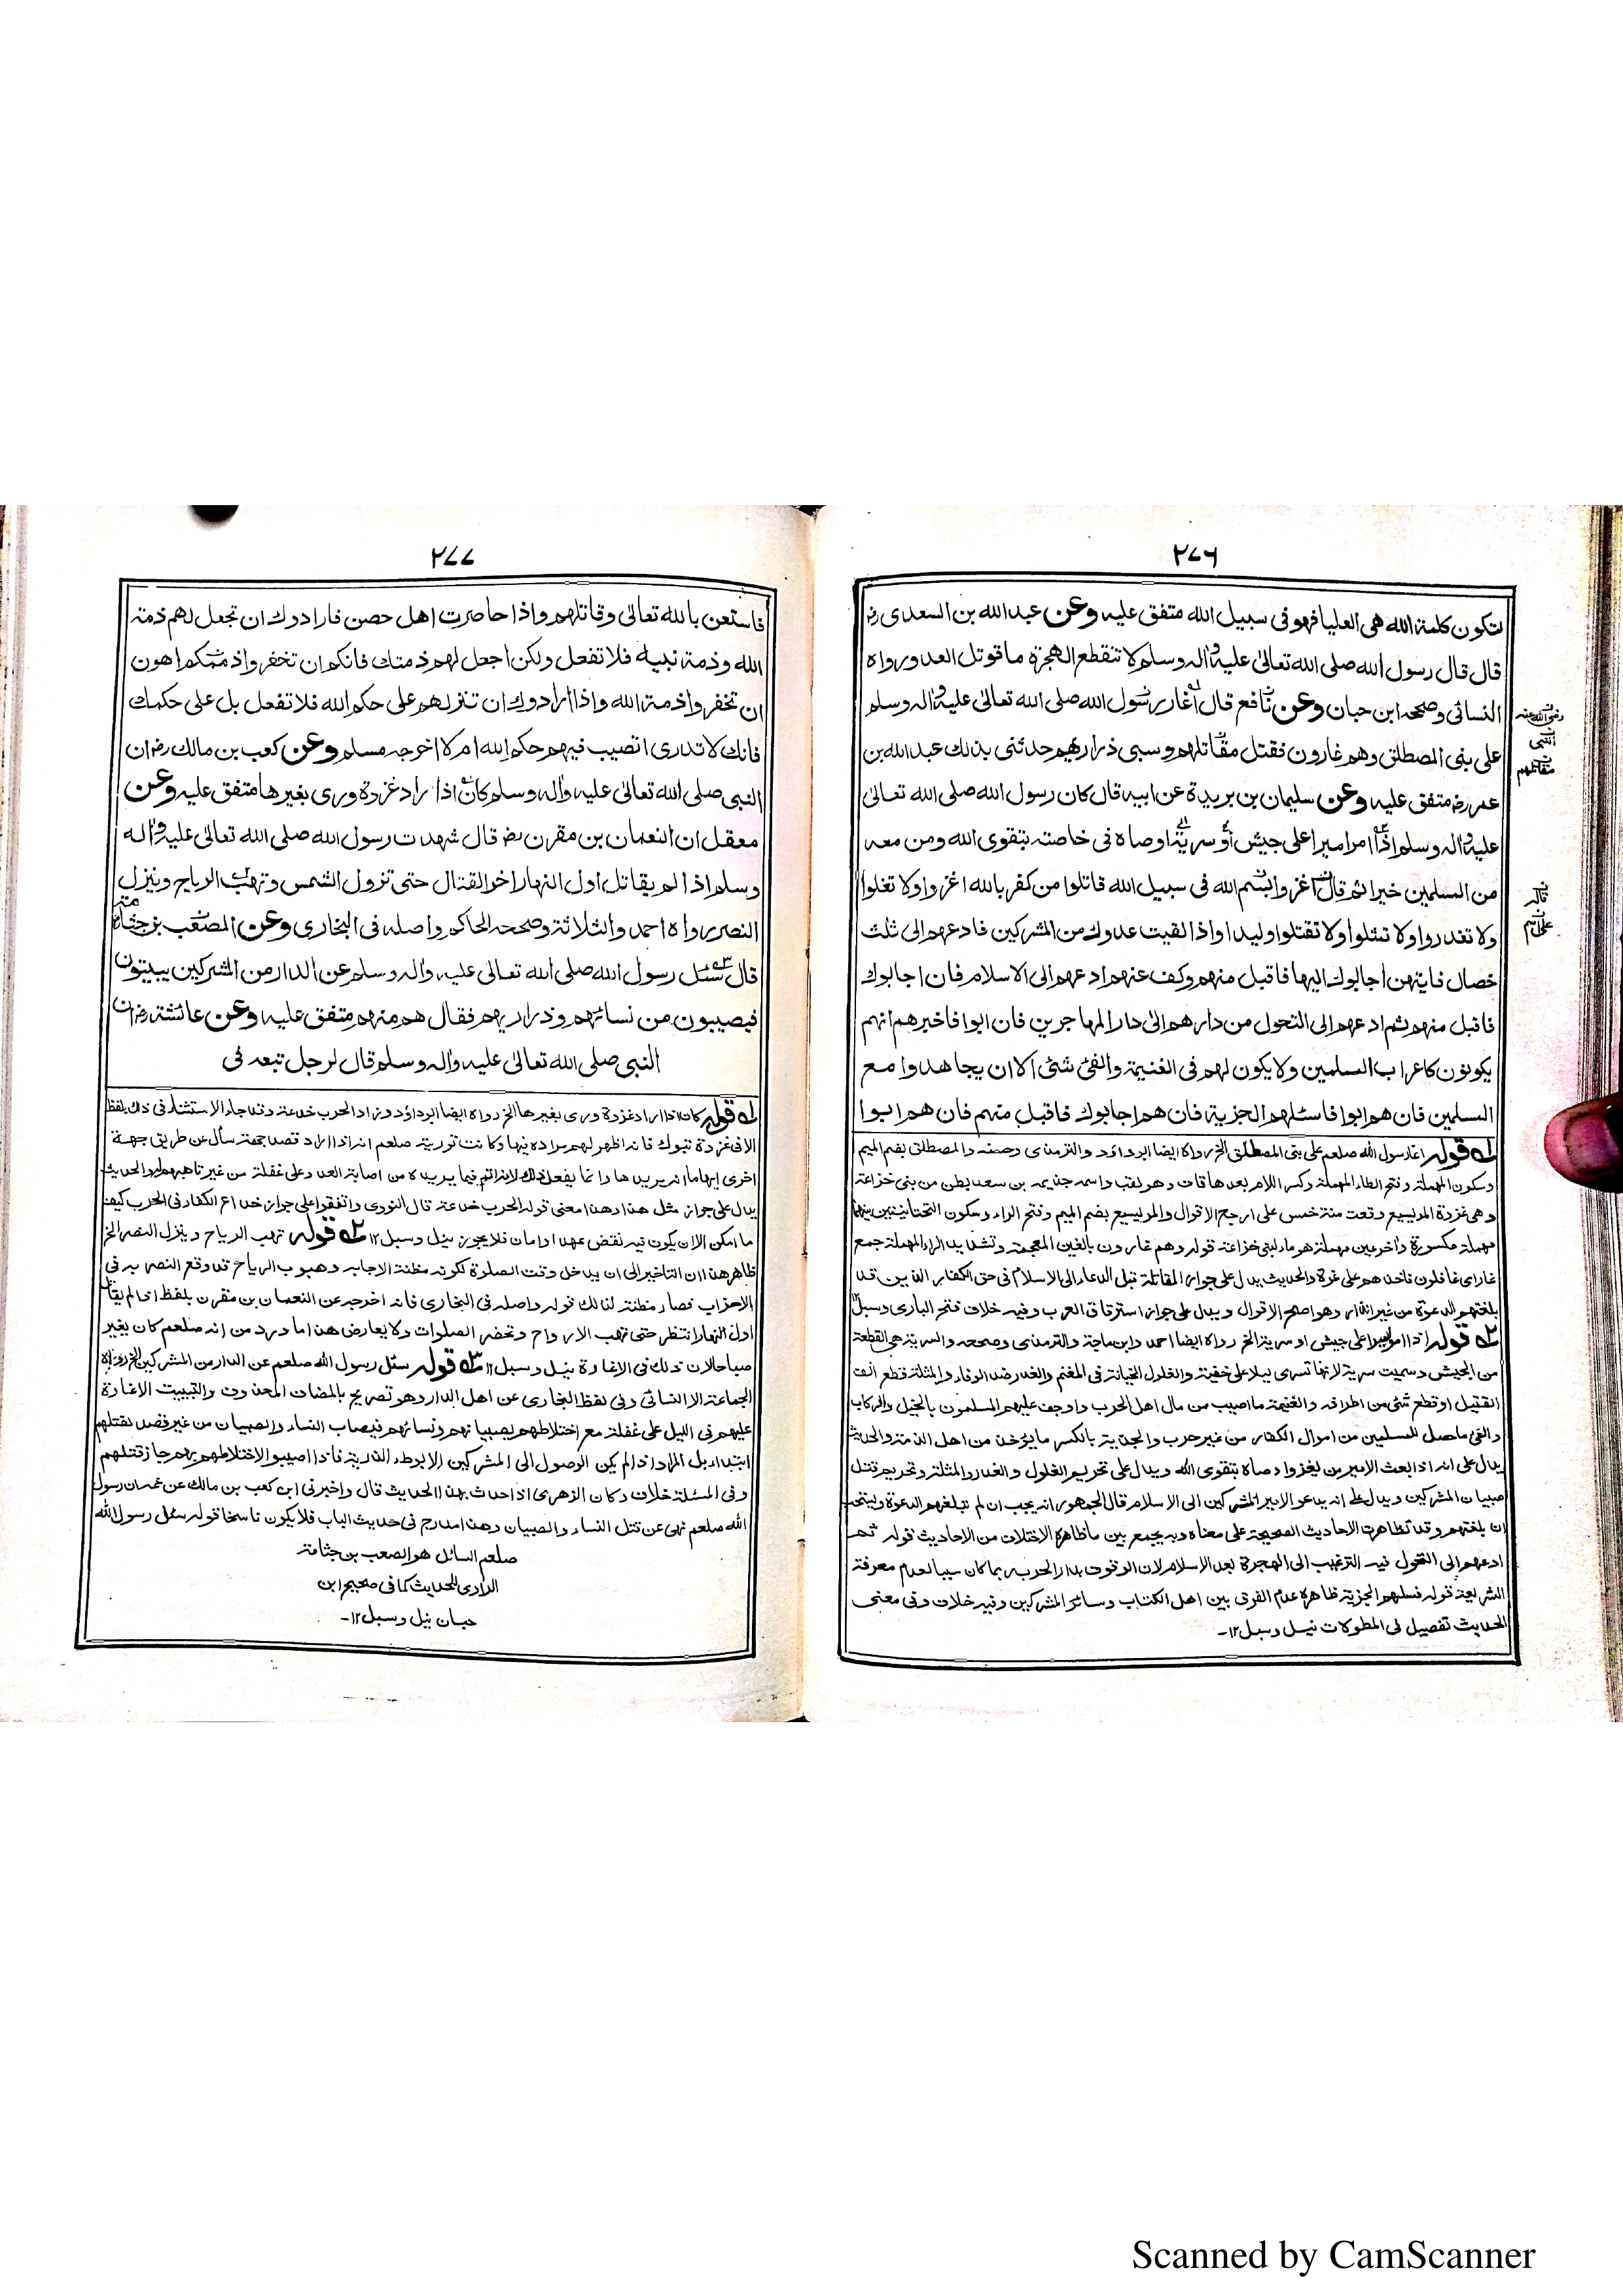 ٢٧٦
لتكون كلمة الله هى العليا فهو فى سبيل الله متفق عليه وعن عبد الله بن السعدى رض
قال قال رسول الله صلى الله تعالى عليه وآله وسلم لا تنقطع الهجرة ما قوتل العدو رواه
النسائى وصححه ابن حبان وعن نافع قال أغار رسول الله صلى الله تعالى عليه وآله وسلم
على بنى المصطلق وهم غارون فقتل مقاتلهم وسبى ذراريهم حدثنى بذلك عبد الله بن
عمر رض متفق عليه وعن سليمان بن بريدة عن ابيه قال كان رسول الله صلى الله تعالى
عليه وآله وسلم اذا امر اميرا على جيش أو سرية اوصاه فى خاصته بتقوى الله ومن معه
من المسلمين خيرا ثم قال اغزوا بسم الله فى سبيل الله قاتلوا من كفر بالله اغزوا ولا تغلوا
ولا تغدروا ولا تمثلوا ولا تقتلوا وليدا واذا لقيت عدوك من المشركين فادعهم الى ثلث
خصال فايتهن اجابوك اليها فاقبل منهم وكف عنهم ادعهم الى الاسلام فان اجابوك
فاقبل منهم ثم ادعهم الى التحول من دارهم الى دار المهاجرين فان ابوا فاخبرهم انهم
يكونون كاعراب المسلمين ولا يكون لهم فى الغنيمة والفئ شئ الا ان يجاهدوا مع
المسلمين فان هم ابوا فاسئلهم الجزية فان هم اجابوك فاقبل منهم فان هم ابوا
رضى الله عنه
مقاتلهم
قاله
على اسم
له قوله اغار رسول الله صلعم على بنى المصطلق الخ رواه ايضا ابو داؤد والترمذى وحصنه والمصطلق بضم الميم
وسكون المهملة وفتح الطاء المهملة وكسر اللام بعدها قاف وهو لقب واسمه جذيمه بن سعد بطن من بنى خزاعة
وهى غزوة المريسيع وقعت سنة خمس على ارجح الاقوال والمريسيع بضم الميم وفتح الراء وسكون التحتانيتين بينهما
مهملة مكسورة واخره عين مهملة هو ماء لبنى خزاعة قوله وهم غارون بالغين المعجمة وتشديد الراء المهملة جمع
غار اى غافلون فاخذهم على غرة والحديث يدل على جواز المقاتلة قبل الدعاء الى الاسلام فى حق الكفار الذين قد
بلغتهم الدعوة من غير انذار وهو اصح الاقوال ويدل على جواز استرقاق العرب وفيه خلاف فتح البارى وسبل ١٢
٢ه قوله اذا امر اميرا على جيش او سرية الخ رواه ايضا احمد وابن ماجة والترمذى وصححه والسرية هى القطعة
من الجيش وسميت سرية لانها تسرى ليلا على خفية والغلول الخيانة فى المغنم والغدر ضد الوفاء والمثلة قطع انف
القتيل او قطع شئ من اطرافه والغنيمة ما اصيب من مال اهل الحرب واوجف عليهم المسلمون بالخيل والركاب
والفئ ما حصل للمسلمين من اموال الكفار من غير حرب والجزية بالكسر ما يؤخذ من اهل الذمة والحديث
يدل على انه اذا بعث الامير من يغزوا وصاه بتقوى الله ويدل على تحريم الغلول والغدر والمثلة وتحريم قتل
صبيان المشركين ويدل على انه يدعو الامير المشركين الى الاسلام قال الجمهور انه يجب ان لم تبلغهم الدعوة ويستحب
ان بلغتهم وقد تظاهرت الاحاديث الصحيحة على معناه وبه يجمع بين ما ظاهره الاختلاف من الاحاديث قوله ثم
ادعهم الى التحول فيه الترغيب الى الهجرة بعد الاسلام لان الوقوف بدار الحرب ربما كان سببا لعدم معرفة
الشريعة قوله فسلهم الجزية ظاهره عدم الفرق بين اهل الكتاب وسائر المشركين وفيه خلاف وفى معنى
الحديث تفصيل فى المطولات نيل وسبل ١٢-
٢٧٧
فاستعن بالله تعالى وقاتلهم واذا حاصرت اهل حصن فارادوك ان تجعل لهم ذمة
الله وذمة نبيه فلا تفعل ولكن اجعل لهم ذمتك فانكم ان تخفروا ذممكم اهون
ان تخفروا ذمة الله واذا ارادوك ان تنزلهم على حكم الله فلا تفعل بل على حكمك
فانك لا تدرى اتصيب فيهم حكم الله ام لا اخرجه مسلم وعن كعب بن مالك رض ان
النبى صلى الله تعالى عليه وآله وسلم كان اذا اراد غزوة ورى بغيرها متفق عليه وعن
معقل ان النعمان بن مقرن رض قال شهدت رسول الله صلى الله تعالى عليه وآله
وسلم اذا لم يقاتل اول النهار اخر القتال حتى تزول الشمس وتهب الرياح وينزل
النصر رواه احمد والثلاثة وصححه الحاكم واصله فى البخارى وعن الصعب بن جثامة
قال سئل رسول الله صلى الله تعالى عليه وآله وسلم عن الدار من المشركين يبيتون
فيصيبون من نسائهم وذراريهم فقال هم منهم متفق عليه وعن عائشة رض ان
النبى صلى الله تعالى عليه وآله وسلم قال لرجل تبعه فى
له قوله كان اذا اراد غزوة ورى بغيرها الخ رواه ايضا ابو داؤد وزاد الحرب خدعة وقد جاء الاستثناء فى ذلك بلفظ
الا فى غزوة تبوك فانه اظهر لهم مراده فيها وكانت توريته صلعم انه اذا اراد قصد جهة سأل عن طريق جهة
اخرى ايهاما انه يريدها وانما يفعل ذلك لانه اتم فيما يريده من اصابة العدو على غفلة من غير تاهبهم له والحديث
يدل على جواز مثل هذا وهذا معنى قوله الحرب خدعة قال النووى واتفقوا على جواز خداع الكفار فى الحرب كيف
ما امكن الا ان يكون فيه نقض عهد او امان فلا يجوز نيل وسبل ١٢ ٢ه قوله تهب الرياح وينزل النصر الخ
ظاهر هذا ان التاخير الى ان يدخل وقت الصلوة لكونه مظنة الاجابه وهبوب الرياح قد وقع النصر به فى
الاحزاب فصار مظنة لذلك قوله واصله فى البخارى فانه اخرجه عن النعمان بن مقرن بلفظ اذا لم يقاتل
اول النهار انتظر حتى تهب الارواح وتحضر الصلوات ولا يعارض هذا ما ورد من انه صلعم كان يغير
صباحا لان ذلك فى الاغارة نيل وسبل ١٢ ٣ه قوله سئل رسول الله صلعم عن الدار من المشركين الخ رواه
الجماعة الا النسائى وفى لفظ البخارى عن اهل الدار وهو تصريح بالمضاف المحذوف والتبييت الاغارة
عليهم فى الليل على غفلة مع اختلاطهم بصبيانهم ونسائهم فيصاب النساء والصبيان من غير قصد لقتلهم
ابتداء بل المراد اذا لم يكن الوصول الى المشركين الا بوطء الذرية فاذا اصيبوا لاختلاطهم بهم جاز قتلهم
وفى المسئلة خلاف وكان الزهرى اذا حدث بهذا الحديث قال واخبرنى ابن كعب بن مالك عن عمه ان رسول
الله صلعم نهى عن قتل النساء والصبيان وهذا مدرج فى حديث الباب فلا يكون ناسخا قوله سئل رسول الله
صلعم السائل هو الصعب بن جثامة
الراوى للحديث كما فى صحيح ابن
حبان نيل وسبل ١٢-
Scanned by CamScanner